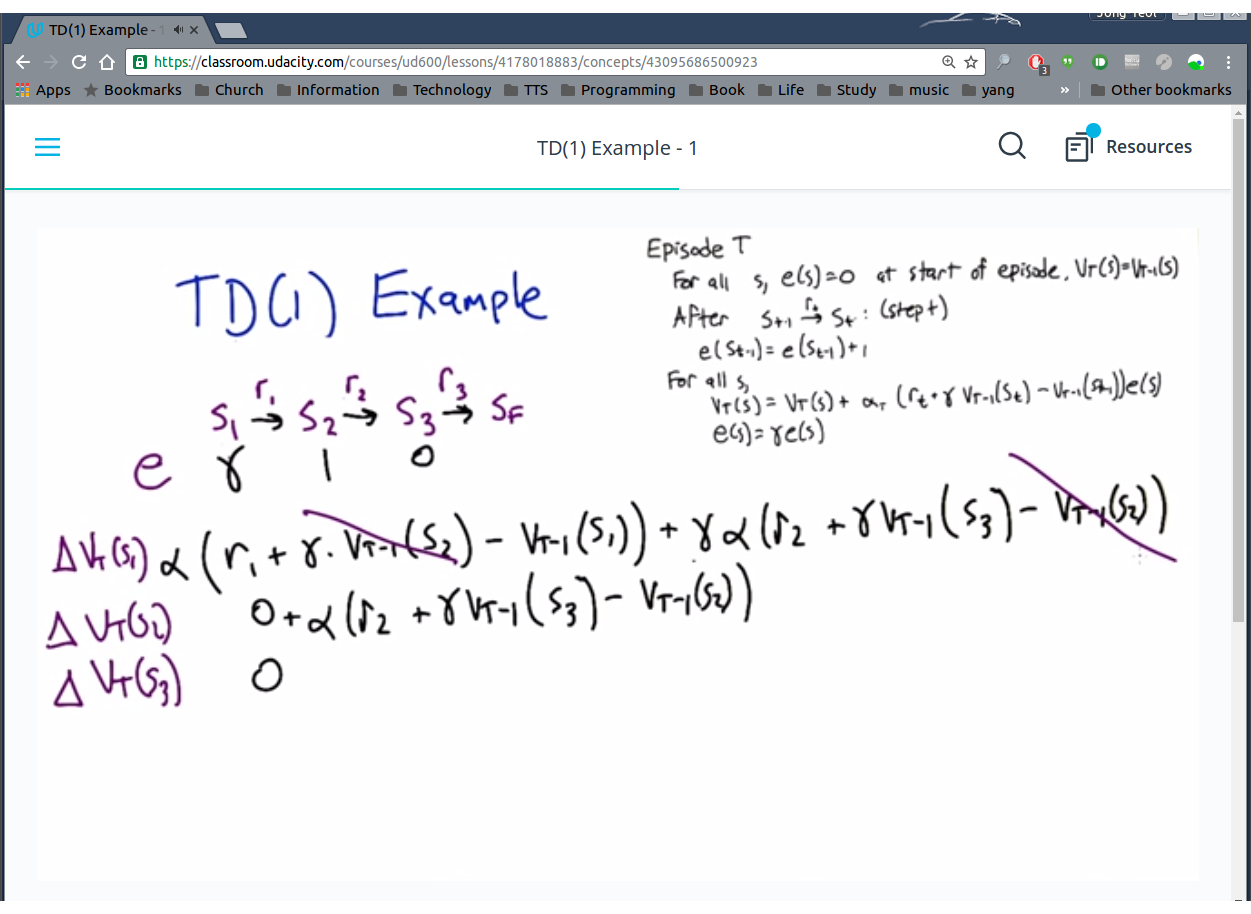 TD(1) Example - 1
Jong Yeol
https://classroom.udacity.com/courses/ud600/lessons/4178018883/concepts/43095686500923
3
Apps Bookmarks Church Information Technology TTS Programming Book Life Study music yang » Other bookmarks
TD(1) Example - 1
Resources
TD(1) Example
Episode T
For all s, e(s)=0 at start of episode, V_T(s)=V_T-1(s)
After S_t-1 →r_t S_t: (step t)
e(S_t-1)=e(S_t-1)+1
For all s,
V_T(s)=V_T(s)+α_T(r_t+γV_T-1(S_t)-V_T-1(S_t-1))e(s)
e(s)=γe(s)
r_1 r_2 r_3
S_1 → S_2 → S_3 → S_F
e γ 1 0
ΔV_T(S_1) α(r_1+γ·V_T-1(S_2)-V_T-1(S_1))+γα(r_2+γV_T-1(S_3)-V_T-1(S_2))
ΔV_T(S_2) 0+α(r_2+γV_T-1(S_3)-V_T-1(S_2))
ΔV_T(S_3) 0